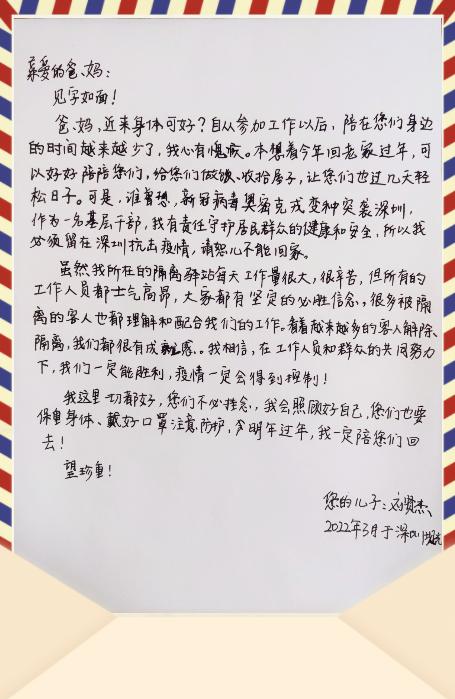 亲爱的爸、妈：
见字如面！
爸、妈，近来身体可好？自从参加工作以后，陪在您们身边
的时间越来越少了，我心有愧疚。本想着今年回老家过年，可
以好好陪陪您们，给您们做饭、收拾房子，让您们也过几天轻
松日子。可是，谁曾想，新冠病毒奥密克戎变种突袭深圳，
作为一名基层干部，我有责任守护居民群众的健康和安全，所以我
必须留在深圳抗击疫情，请恕儿不能回家。
虽然我所在的隔离驿站每天工作量很大，很辛苦，但所有的
工作人员都士气高昂，大家都有坚定的必胜信念，很多被隔
离的客人也都理解和配合我们的工作。看着越来越多的客人解除
隔离，我们都很有成就感。我相信，在工作人员和群众的共同努力
下，我们一定能胜利，疫情一定会得到控制！
我这里一切都好，您们不必挂念，我会照顾好自己，您们也要
保重身体、戴好口罩注意防护，明年过年，我一定陪您们回
去！
望珍重！
您的儿子：刘贤杰
2022年3月于深圳